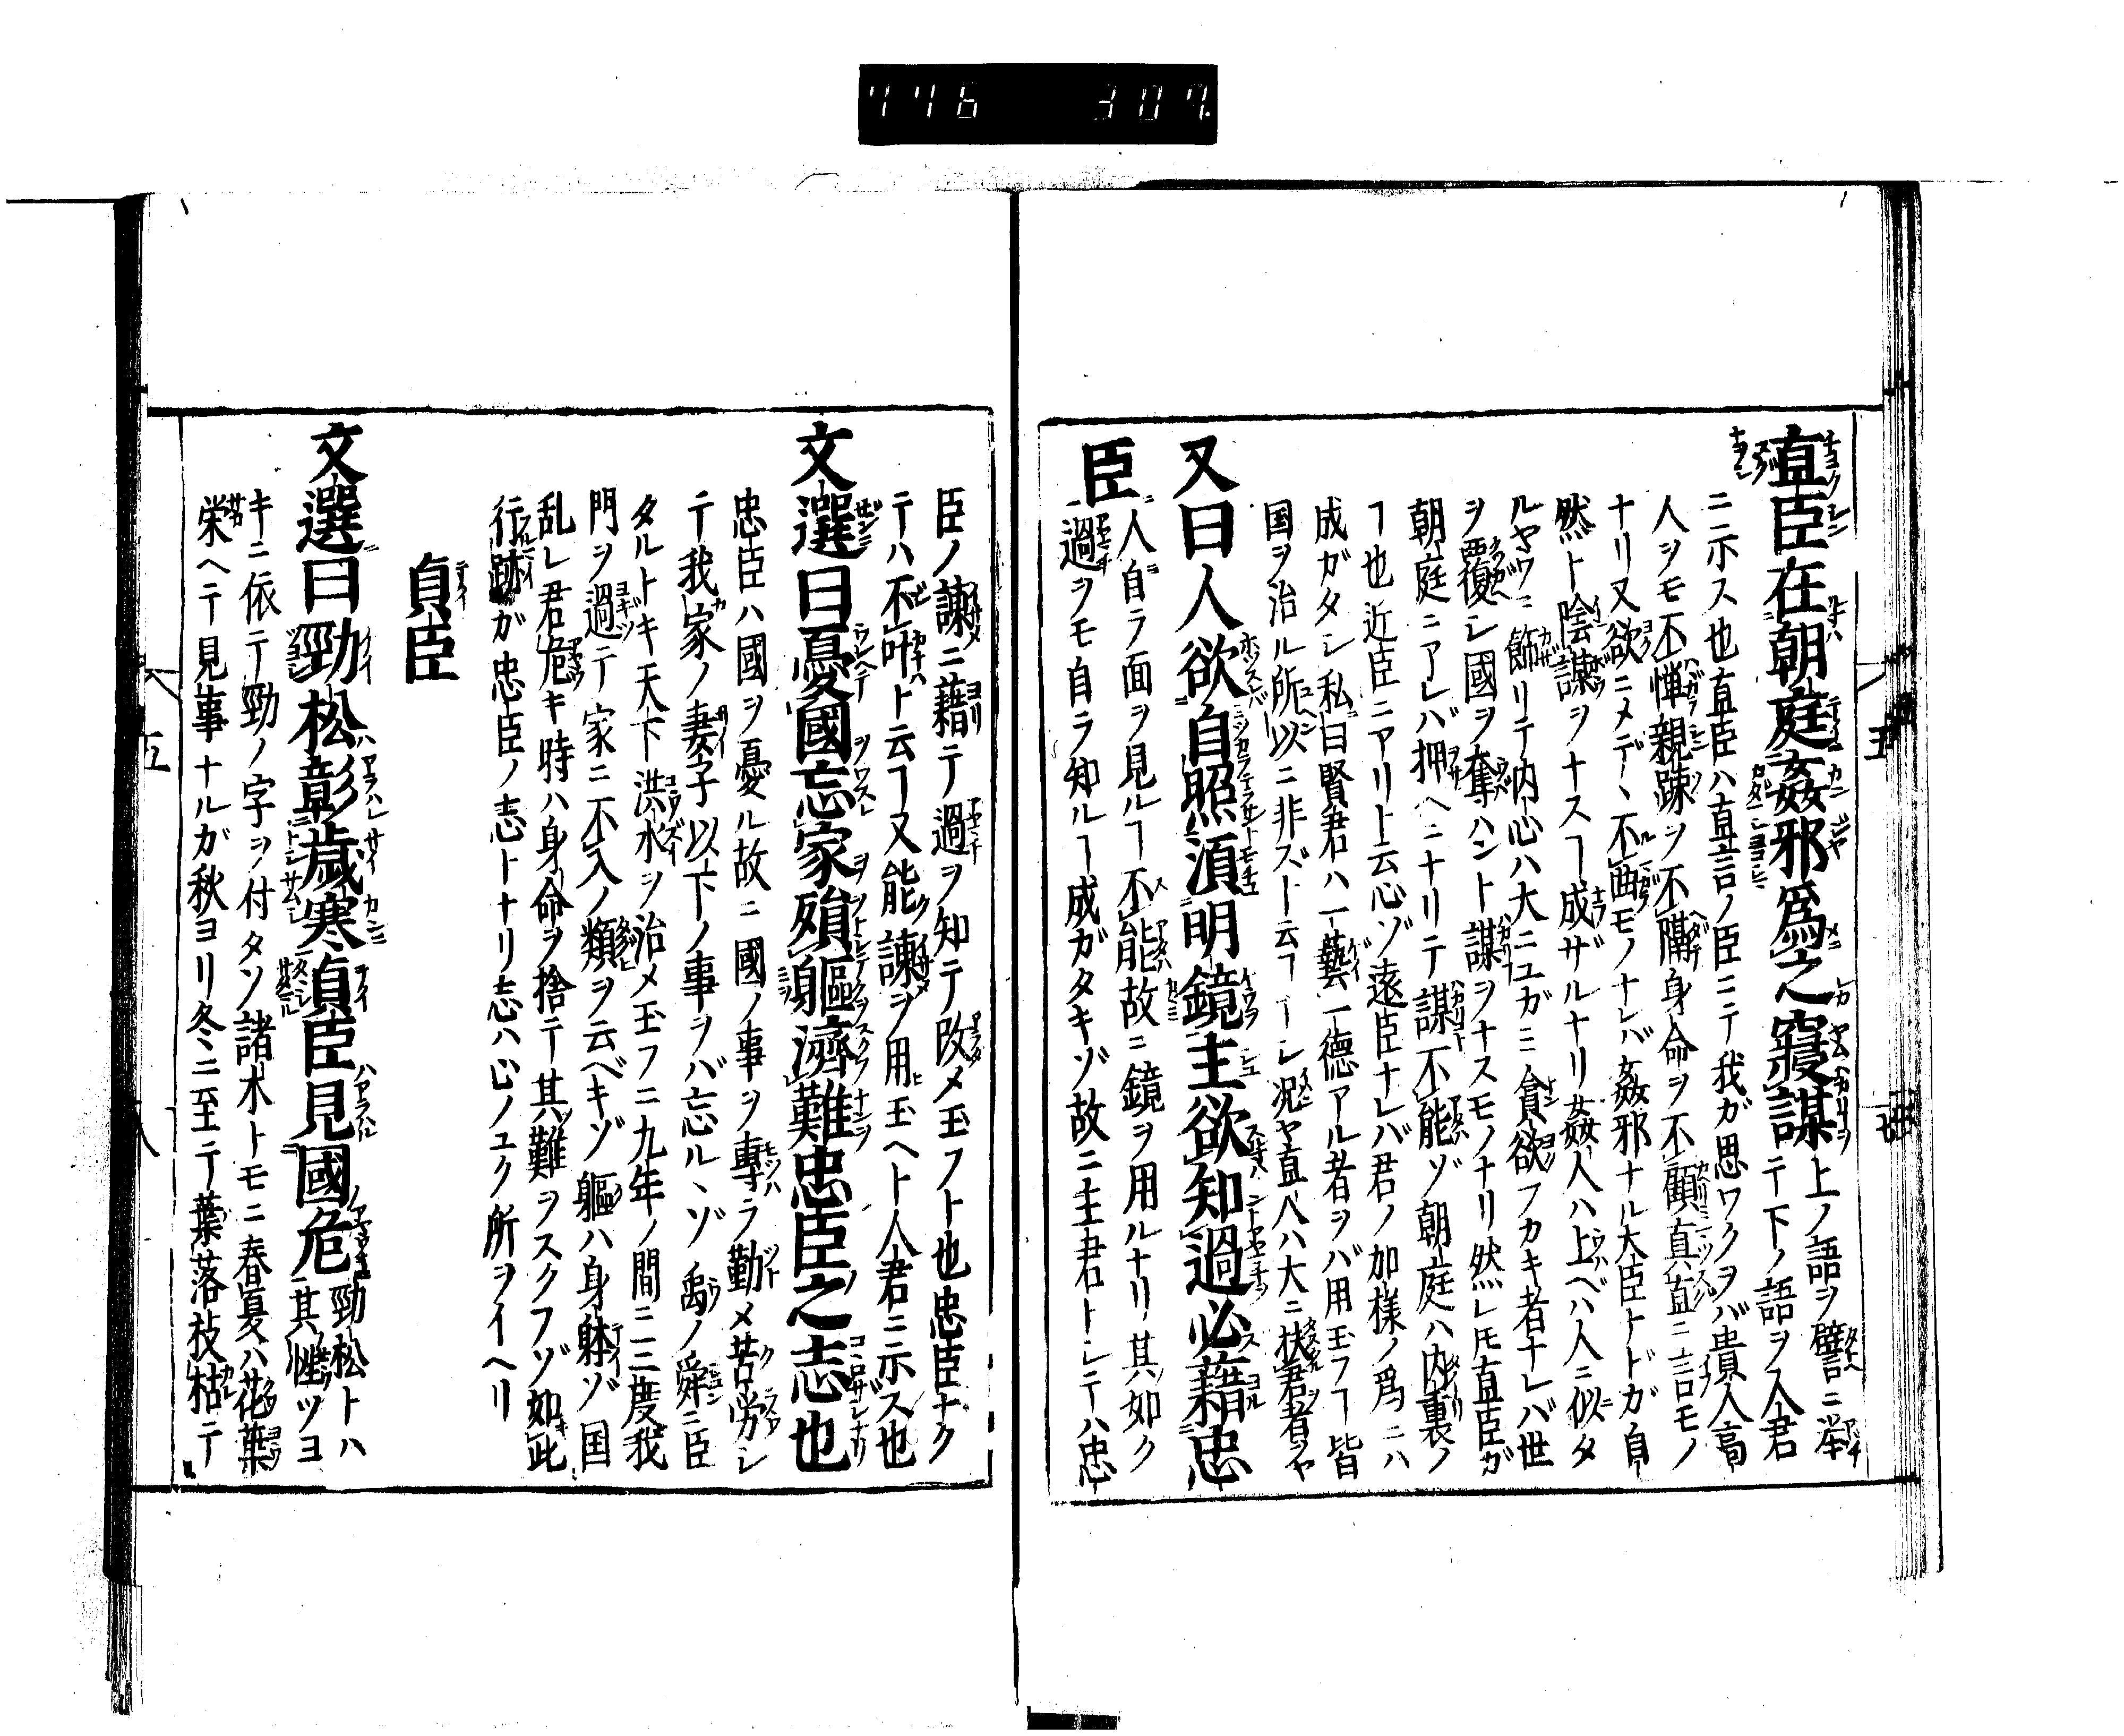 776 307
直臣在朝庭姦邪爲之寢謀上ノ語ヲ譬ニ挙
テ下ノ語ヲス人君
ニ示ス也直臣ハ直言ノ臣ニテ我ガ思ワクヲバ貴人高
人ヲモ不憚親疎ヲ不隔身命ヲ不顧真直ニ言モノ
ナリ又欲ニメデヽ不曲モノナレバ姦邪ナル大臣トドガ自
然ト陰謀ヲナスヿ成ザルナリ姦人ハ上ベハ人ニ似タ
ルヤウニ飾リテ内心ハ大ニユガミ貪欲フカキ者ナレバ世
ヲ覆シ國ヲ奪ハント謀ヲナスモノナリ然レ𪜈直臣ガ
朝庭ニアレバ押ヘニナリテ謀不能ゾ朝庭ハ内裏ノ
ヿ也近臣ニアリト云心ゾ遠臣ナレバ君ノ加様ノ爲ニハ
成ガタシ私曰賢君ハ一藝一德アル者ヲバ用玉フヿ皆
国ヲ治ル所以ニ非ズト云ヿナシ况ヤ直人ハ大ニ扶君者ヲヤ
又曰人欲自照湏明鏡主欲知過必藉忠
臣
人自ラ面ヲ見ルヿ不能故ニ鏡ヲ用ルナリ其如ク
過ヲモ自ラ知ルヿ成ガタキゾ故ニ主君トシテハ忠
臣ノ諫ニ藉テ過ヲ知テ改メ玉フト也忠臣ナク
テハ不叶ト云ヿ又能諫ヲ用玉ヘト人君ニ示ス也
文選曰憂國忘家殞軀濟難忠臣之志也
忠臣ハ國ヲ憂ル故ニ國ノ事ヲ專ラ勤メ苦労シ
テ我家ノ妻子以下ノ事ヲバ忘ルヽゾ禹ノ舜ニ臣
タルトキ天下洪水ヲ治メ玉フニ九年ノ間ニ三度我
門ヲ過テ家ニ不入ノ類ヲ云ベキゾ軀ハ身躰ゾ国
乱レ君危キ時ハ身命ヲ捨テ其難ヲスクフゾ如此
行跡ガ忠臣ノ志トナリ志ハ心ノユク所ヲイヘリ
貞臣
文選曰勁松彰歳寒貞臣見國危勁松トハ
其性ツヨ
キニ依テ勁ノ字ヲ付タソ諸木トモニ春夏ハ花葉
栄ヘテ見事ナルガ秋ヨリ冬ニ至テ葉落枝枯テ